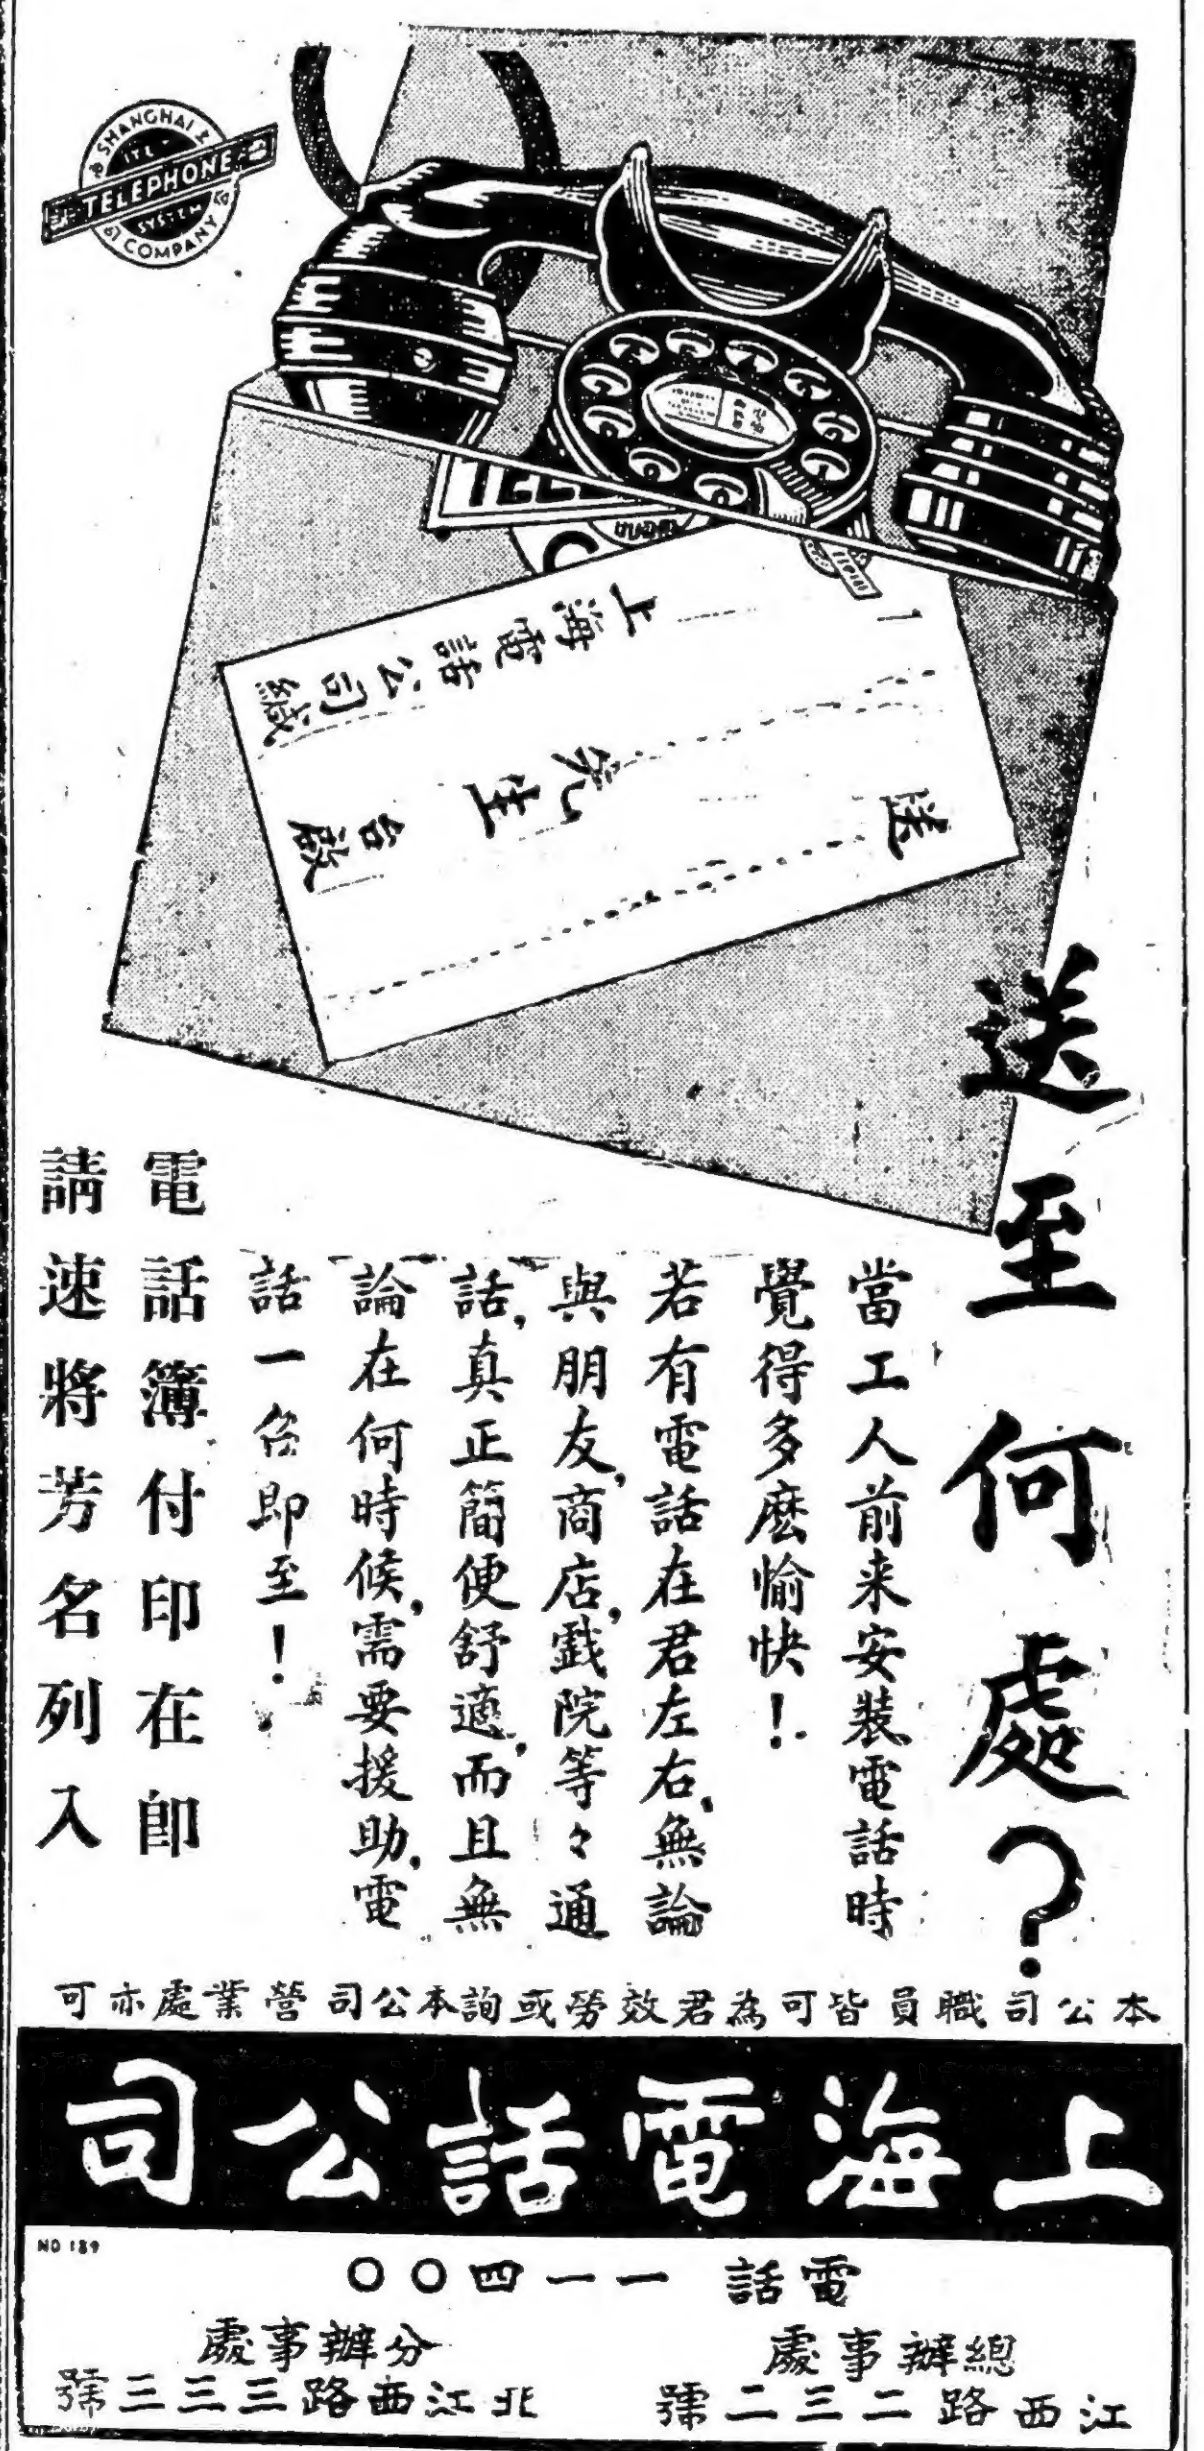 SHANGHAI
TELEPHONE
SYSTEM
COMPANY
送
先生 台啟
上海電話公司緘
送至何處？
當工人前来安裝電話時
覺得多麽愉快！
若有電話在君左右,無論
與朋友,商店,戲院等々通
話,真正簡便舒適,而且無
論在何時候,需要援助,電
話一即至！
電話簿付印在即
請速將芳名列入
本公司職員皆可為君效勞或詢本公司營業處亦可
上海電話公司
NO 189
電話 一一四〇〇
總辦事處
江西路二三二號
分辦事處
北江西路三三三號